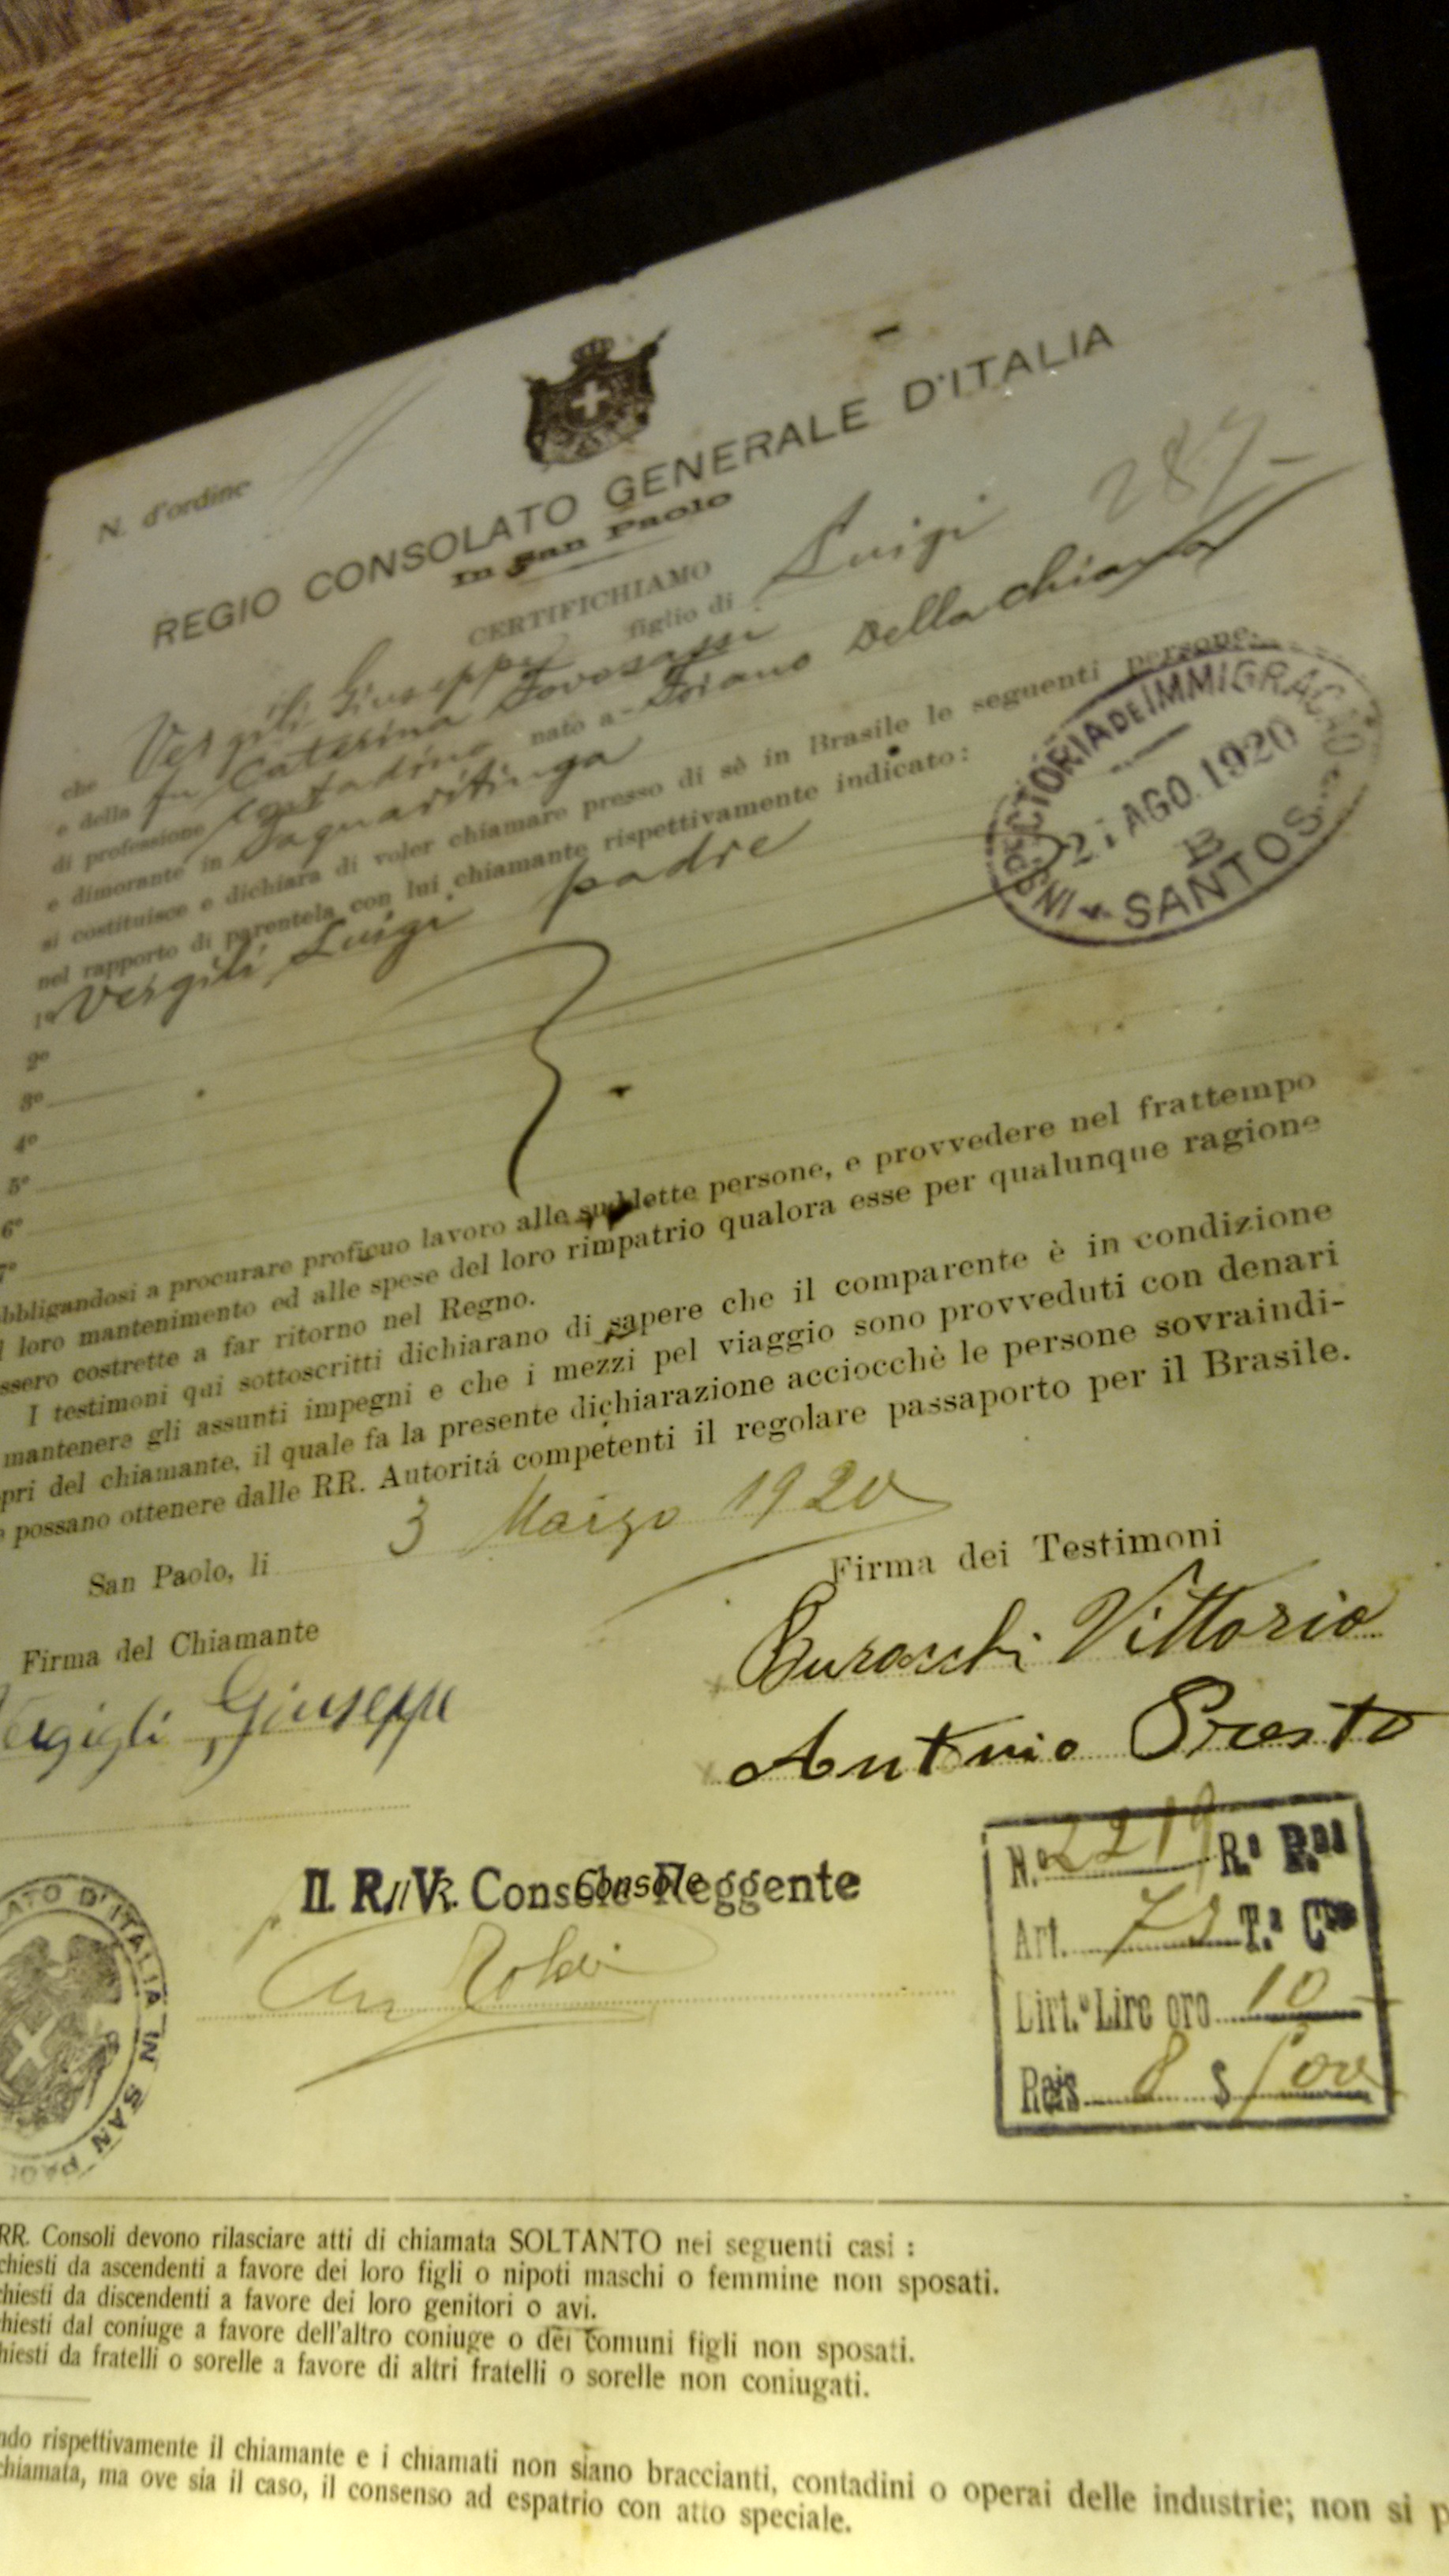 N. d'ordine
REGIO CONSOLATO GENERALE D'ITALIA
In San Paolo
CERTIFICHIAMO
287
che Vergili Giuseppe figlio di Luigi
e della fu Caterina
di professione contadino nato a Foiano Della chiana
e dimorante in Taquaritinga
si costituisce e dichiara di voler chiamare presso di sè in Brasile le seguenti persone
nel rapporto di parentela con lui chiamante rispettivamente indicato:
1º Vergili Luigi padre
2º
3º
4º
5º
6º
7º
INSPECTORIA DE IMMIGRAÇÃO
AGO. 1920
B
SANTOS
obbligandosi a procurare proficuo lavoro alle suddette persone, e provvedere nel frattempo
l loro mantenimento ed alle spese del loro rimpatrio qualora esse per qualunque ragione
ssero costrette a far ritorno nel Regno.
I testimoni qui sottoscritti dichiarano di sapere che il comparente è in condizione
mantenere gli assunti impegni e che i mezzi pel viaggio sono provveduti con denari
pri del chiamante, il quale fa la presente dichiarazione acciocchè le persone sovraindi-
e possano ottenere dalle RR. Autoritá competenti il regolare passaporto per il Brasile.
San Paolo, li 3 Marzo 1920
Firma dei Testimoni
Firma del Chiamante
Vittorio
Vergigli Giuseppe
Antonio Presto
Il R. V. Console Reggente
Console
ATO D'ITALIA IN SAN PAO
N.º 2219 R.ª P.
Art. T.ª C
Dirt.º Lire oro 10
Reis 8 $ 500
RR. Consoli devono rilasciare atti di chiamata SOLTANTO nei seguenti casi :
chiesti da ascendenti a favore dei loro figli o nipoti maschi o femmine non sposati.
hiesti da discendenti a favore dei loro genitori o avi.
hiesti dal coniuge a favore dell'altro coniuge o dei comuni figli non sposati.
hiesti da fratelli o sorelle a favore di altri fratelli o sorelle non coniugati.
ndo rispettivamente il chiamante e i chiamati non siano braccianti, contadini o operai delle industrie; non si p
chiamata, ma ove sia il caso, il consenso ad espatrio con atto speciale.